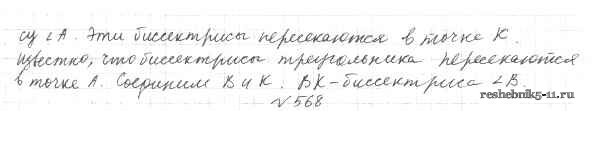 су ∠A. Эти биссектрисы пересекаются в точке K.
Известно, что биссектрисы треугольника пересекаются
в точке A. Соединим B и K. BK - биссектриса ∠B.
√568
reshebnik5-11.ru